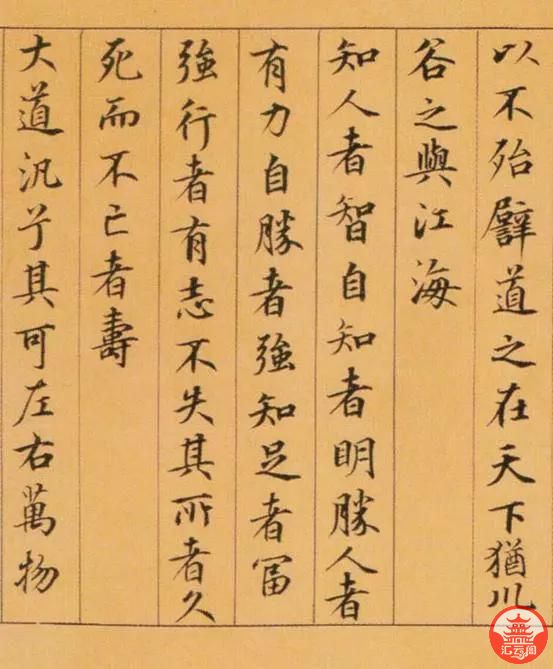 以不殆譬道之在天下猶川
谷之與江海
知人者智自知者明勝人者
有力自勝者強知足者富
強行者有志不失其所者久
死而不亡者壽
大道汎兮其可左右萬物
汇云阁